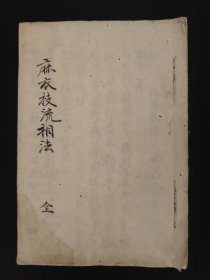 麻衣枝流相法
全